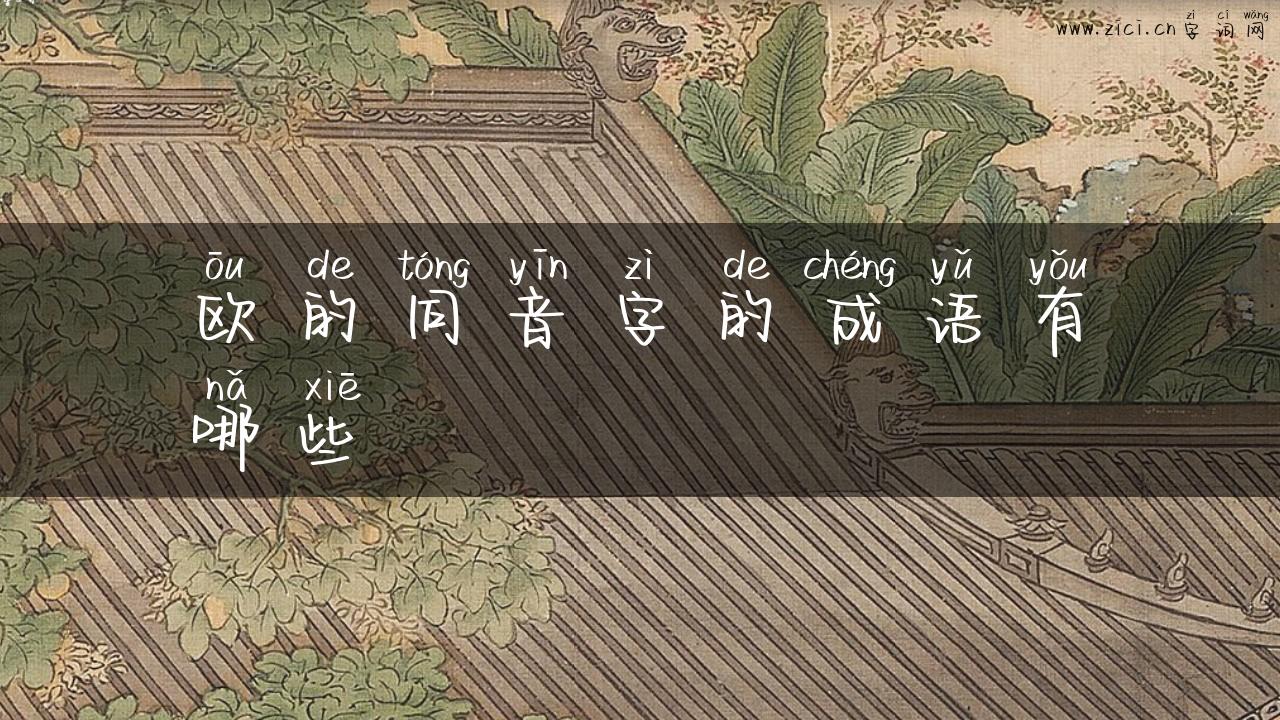 zì cí wǎng
www.zici.cn 字词网
ōu de tóng yīn zì de chéng yǔ yǒu
欧的同音字的成语有
nǎ xiē
哪些